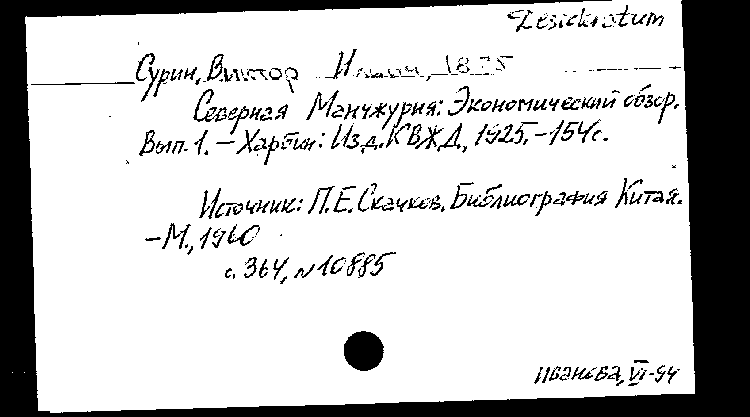 Desideratum
Сурин, Виктор Ильич, 1875
Северная Манчжурия: Экономический обзор.
Вып. 1. – Харбин: Изд. КВЖД, 1925. – 154 с.
Источник: П.Е. Скачков. Библиография Китая.
– М., 1960
с. 364, № 10885
Иванова, VI-94